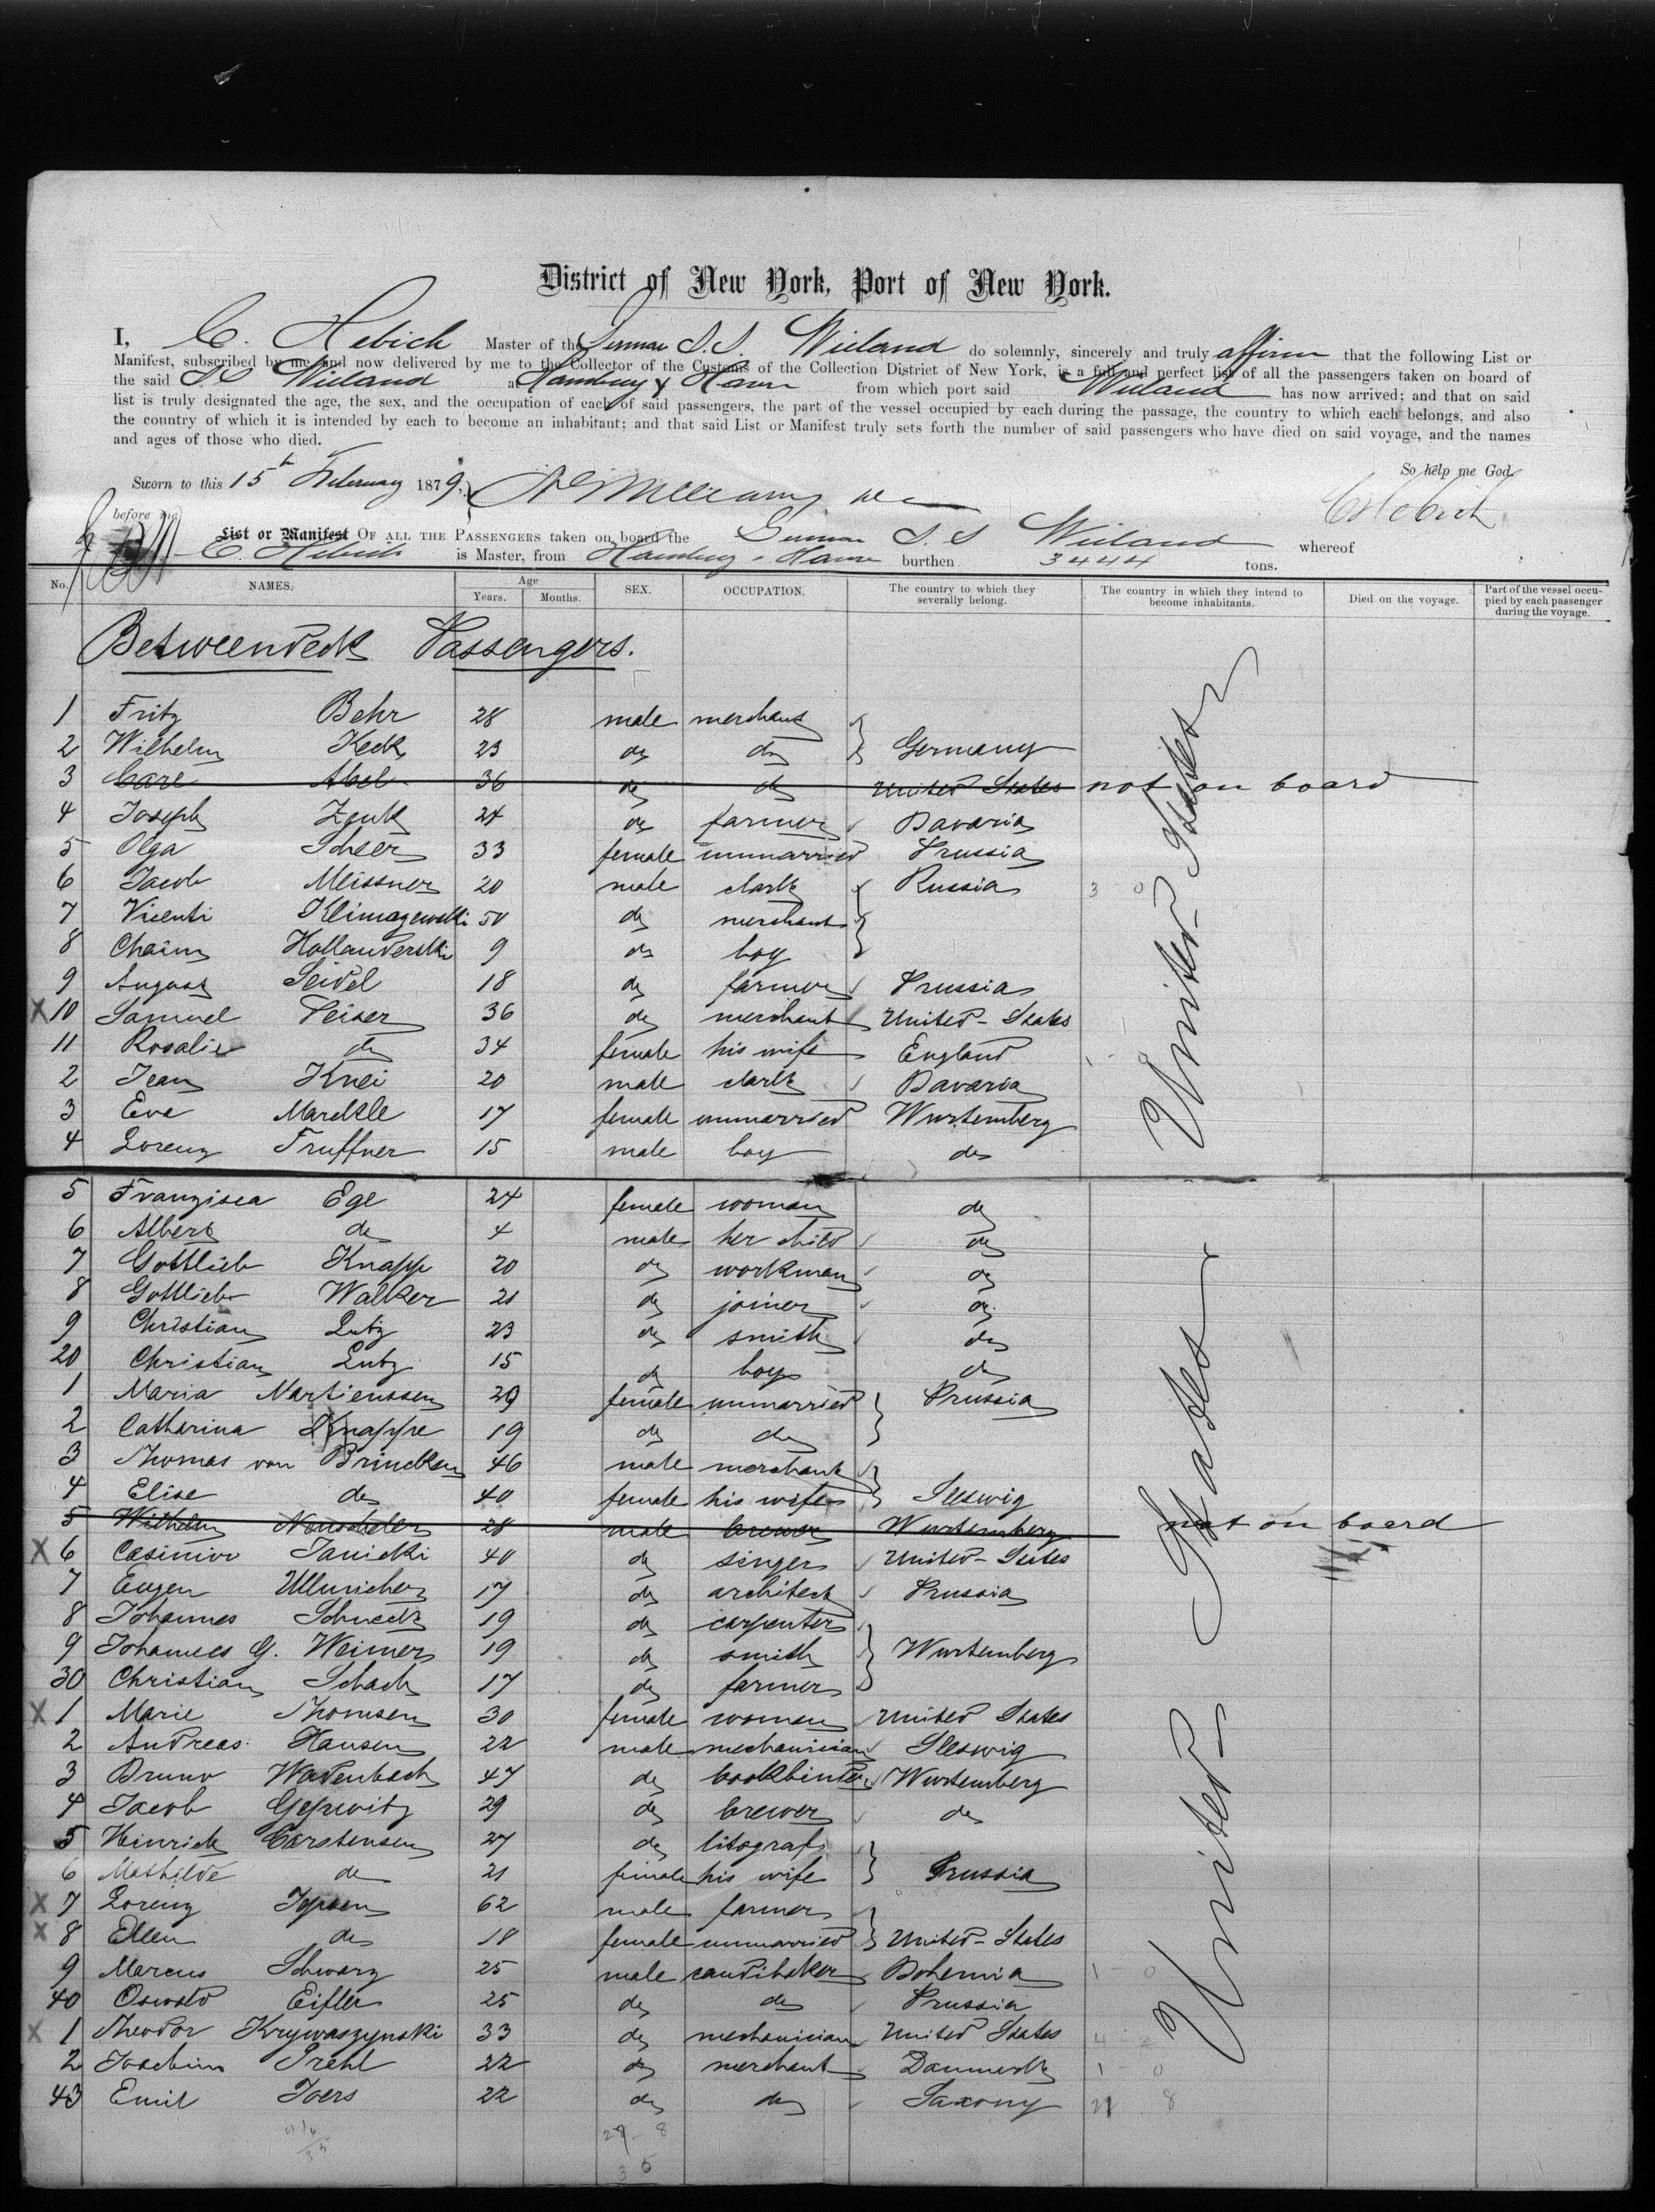 District of New York, Port of New York.
I, C. Hebich Master of the German S.S. Wieland do solemnly, sincerely and truly affirm that the following List or
Manifest, subscribed by me and now delivered by me to the Collector of the Customs of the Collection District of New York, is a full and perfect list of all the passengers taken on board of
the said SS Wieland at Hamburg & Havre from which port said Wieland has now arrived; and that on said
list is truly designated the age, the sex, and the occupation of each of said passengers, the part of the vessel occupied by each during the passage, the country to which each belongs, and also
the country of which it is intended by each to become an inhabitant; and that said List or Manifest truly sets forth the number of said passengers who have died on said voyage, and the names
and ages of those who died.
So help me God.
Sworn to this 15th February 1879
C Hebich
before me
List or Manifest OF ALL THE PASSENGERS taken on board the German S.S Wieland whereof
C. Hebich is Master, from Hamburg & Havre burthen 3444 tons.
No. NAMES. Age Years. Months. SEX. OCCUPATION. The country to which they severally belong. The country in which they intend to become inhabitants. Died on the voyage. Part of the vessel occupied by each passenger during the voyage.
Betweendeck Passengers.
1 Fritz Behr 28 male merchant
2 Wilhelm Keck 23 do do Germany
3 Carl Abel 36 do do United States not on board
4 Joseph Zenk 24 do farmer Bavaria
5 Olga Scheer 33 female unmarried Prussia
6 Jacob Meissner 20 male clark Russia 3 0
7 Vicenti Klimazewski 50 do merchant
8 Chaim Hollanderski 9 do boy
9 August Seidel 18 do farmer Prussia
X 10 Samuel Peiser 36 do merchant United-States
11 Rosalie do 34 female his wife England 1 - 0
2 Jean Knei 20 male clark Bavaria
3 Eva Marckle 17 female unmarried Wurtemberg
4 Lorenz Truffner 15 male boy do
United States
5 Franzisca Ege 24 female woman do
6 Albert do 4 male her child do
7 Gottlieb Knapp 20 do workman do
8 Gottlieb Walker 21 do joiner do
9 Christian Lutz 23 do smith do
20 Christian Lutz 15 do boy do
1 Maria Martienssen 29 female unmarried Prussia
2 Catharina Knappe 19 do do
3 Thomas von Brincken 46 male merchant
4 Elise do 40 female his wife Sleswig
5 Wilhelm Neuscheler 28 male brewer Wurtemberg not on board
X 6 Casimior Janicki 40 do singer United-States
7 Eugen Ulmricher 17 do architect Prussia
8 Johannes Schneck 19 do carpenter
9 Johannes G. Weimer 19 do smith Wurtemberg
30 Christian Schach 17 do farmer
X 1 Marie Thomsen 30 female woman United States
2 Andreas Hansen 22 male mechanician Sleswig
3 Bruno Wadenbach 47 do bookbinder Wurtemberg
4 Jacob 29 do brewer do
5 Heinrich Carstensen 27 do litograf
6 Mathilde do 21 female his wife Prussia
X 7 Lorenz Jepsen 62 male farmer
X 8 Ellen do 18 female unmarried United-States
9 Marcus Schwarz 25 male Bohemia 1 - 0
40 Oswald Eifler 25 do do Prussia
X 1 Theodor Krywaszynski 33 do mechanician United States 4 - 2
2 Joachim Prehl 22 do merchant Danmark 1 - 0
43 Emil Joers 22 do do Saxony 21 8
United States